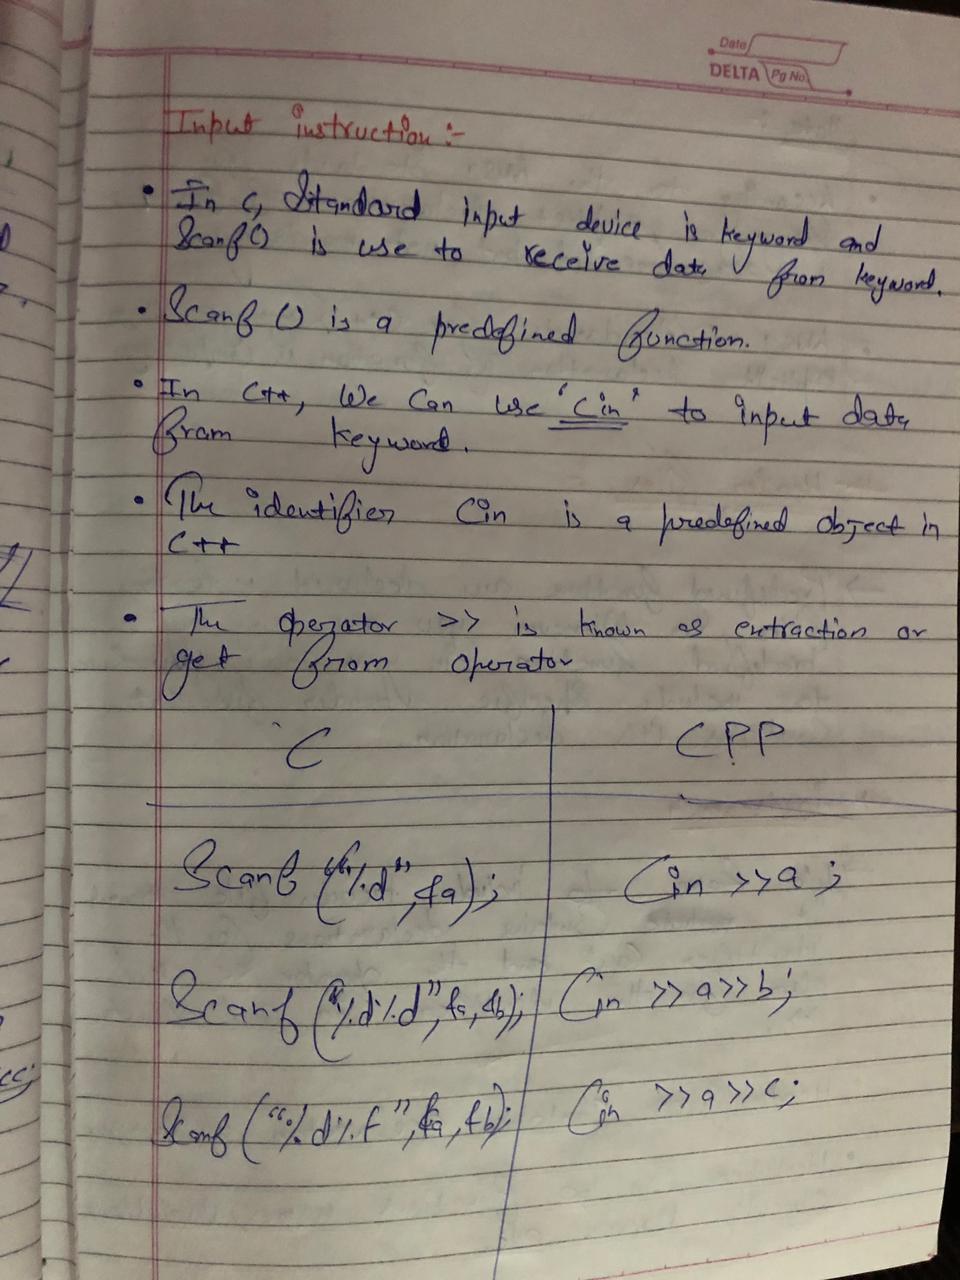 Date
DELTA Pg No.
Input instruction :-
• In C, Standard input device is keyword and
Scanf() is use to receive data from keyword.
• Scanf () is a predefined function.
• In C++, We Can use 'Cin' to input data
from keyword.
• The identifier Cin is a predefined object in
C++
• The operator >> is known as extraction or
get from operator
C CPP
Scanf ("%d", &a); Cin >>a ;
Scanf ("%d%d", &a, &b); Cin >>a>>b;
Scanf ("%d%f", &a, &b); Cin >>a>>c;